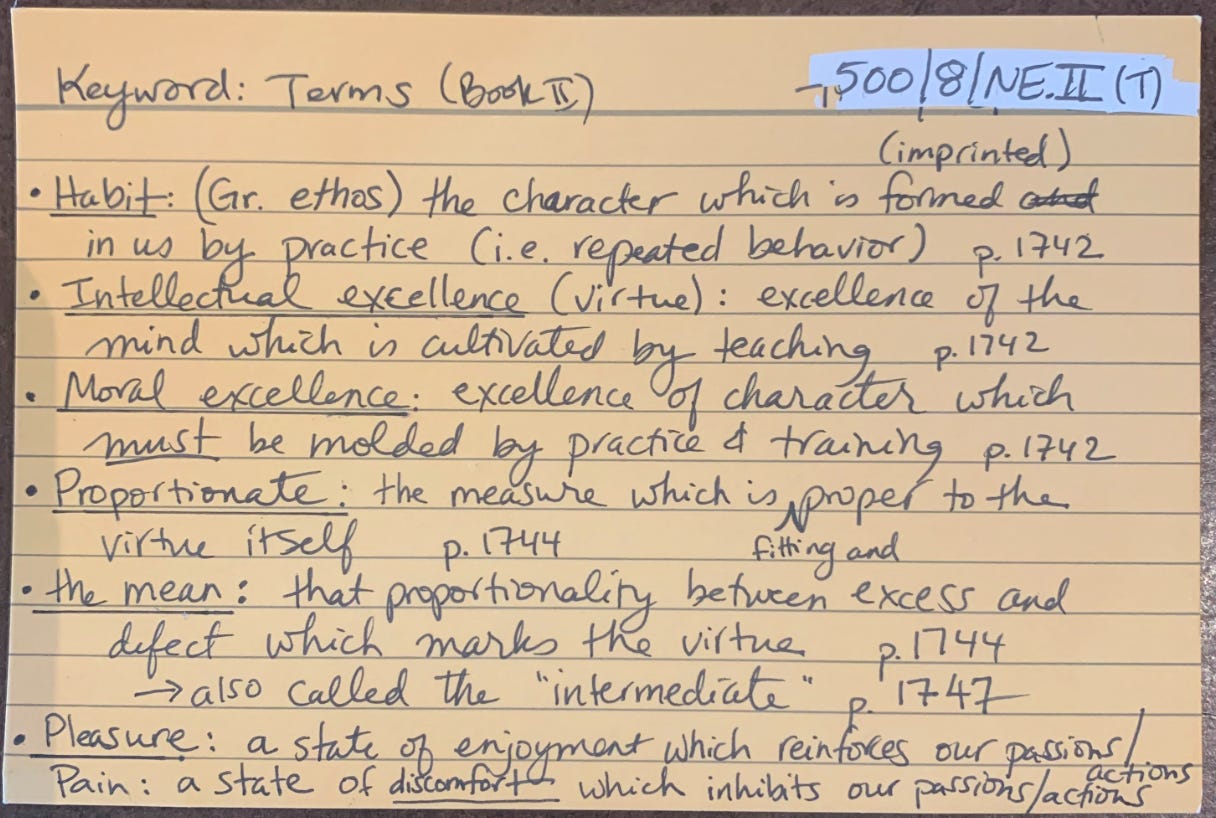 Keyword: Terms (Book II) 500/8/NE.II (T)
(imprinted)
• Habit: (Gr. ethos) the character which is formed and
in us by practice (i.e. repeated behavior) p. 1742
• Intellectual excellence (virtue): excellence of the
mind which is cultivated by teaching p. 1742
• Moral excellence: excellence of character which
must be molded by practice & training p. 1742
• Proportionate: the measure which is proper to the
virtue itself p. 1744 fitting and
• the mean: that proportionality between excess and
defect which marks the virtue p. 1744
→ also called the "intermediate" p. 1747
• Pleasure: a state of enjoyment which reinforces our passions/
actions
Pain: a state of discomfort which inhibits our passions/actions